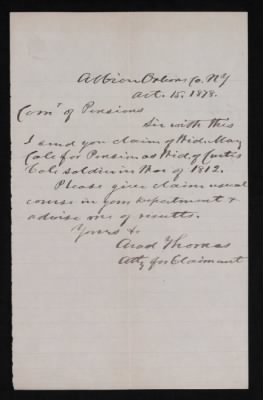 Albion Orleans Co. NY
Oct. 15, 1878.
Comr of Pensions
Sir with this
I send you claim of Wid. Mary
Cole for Pension as Wid of Curtis
Cole soldier in War of 1812.
Please give claim usual
course in your Department &
advise me of results.
Yours &c
Arad Thomas
Atty for Claimant